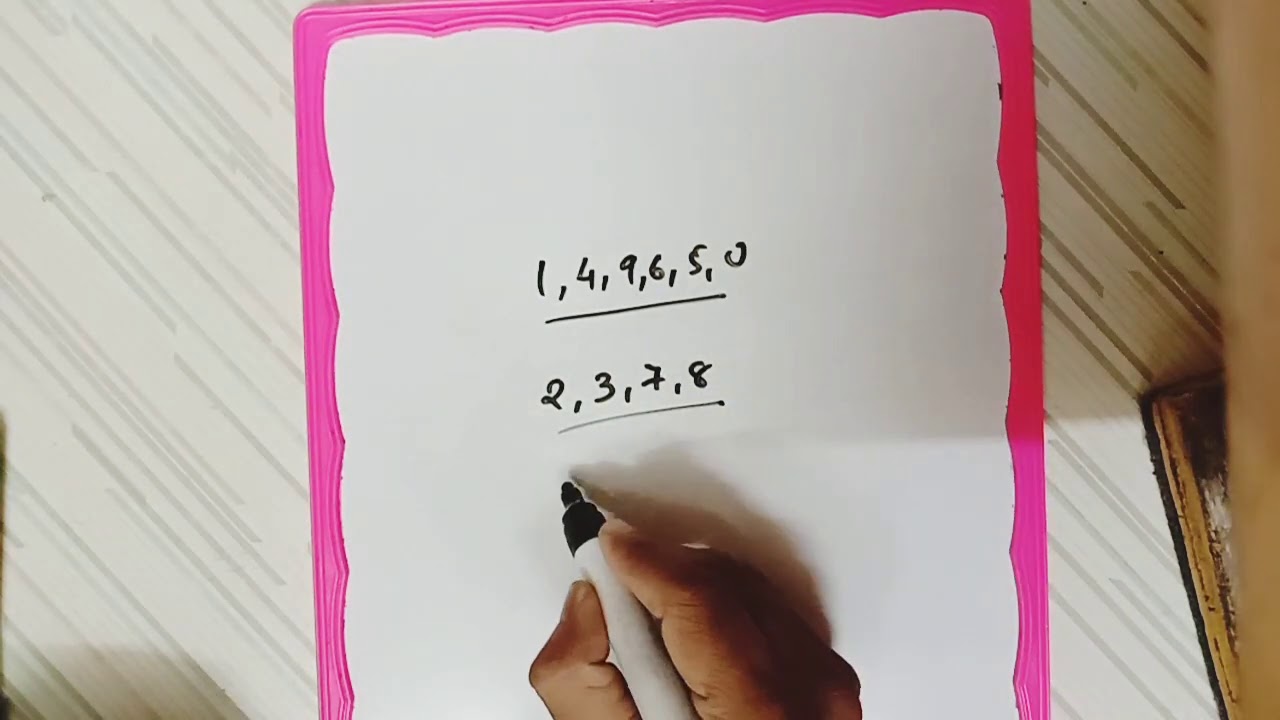 1, 4, 9, 6, 5, 0
2, 3, 7, 8